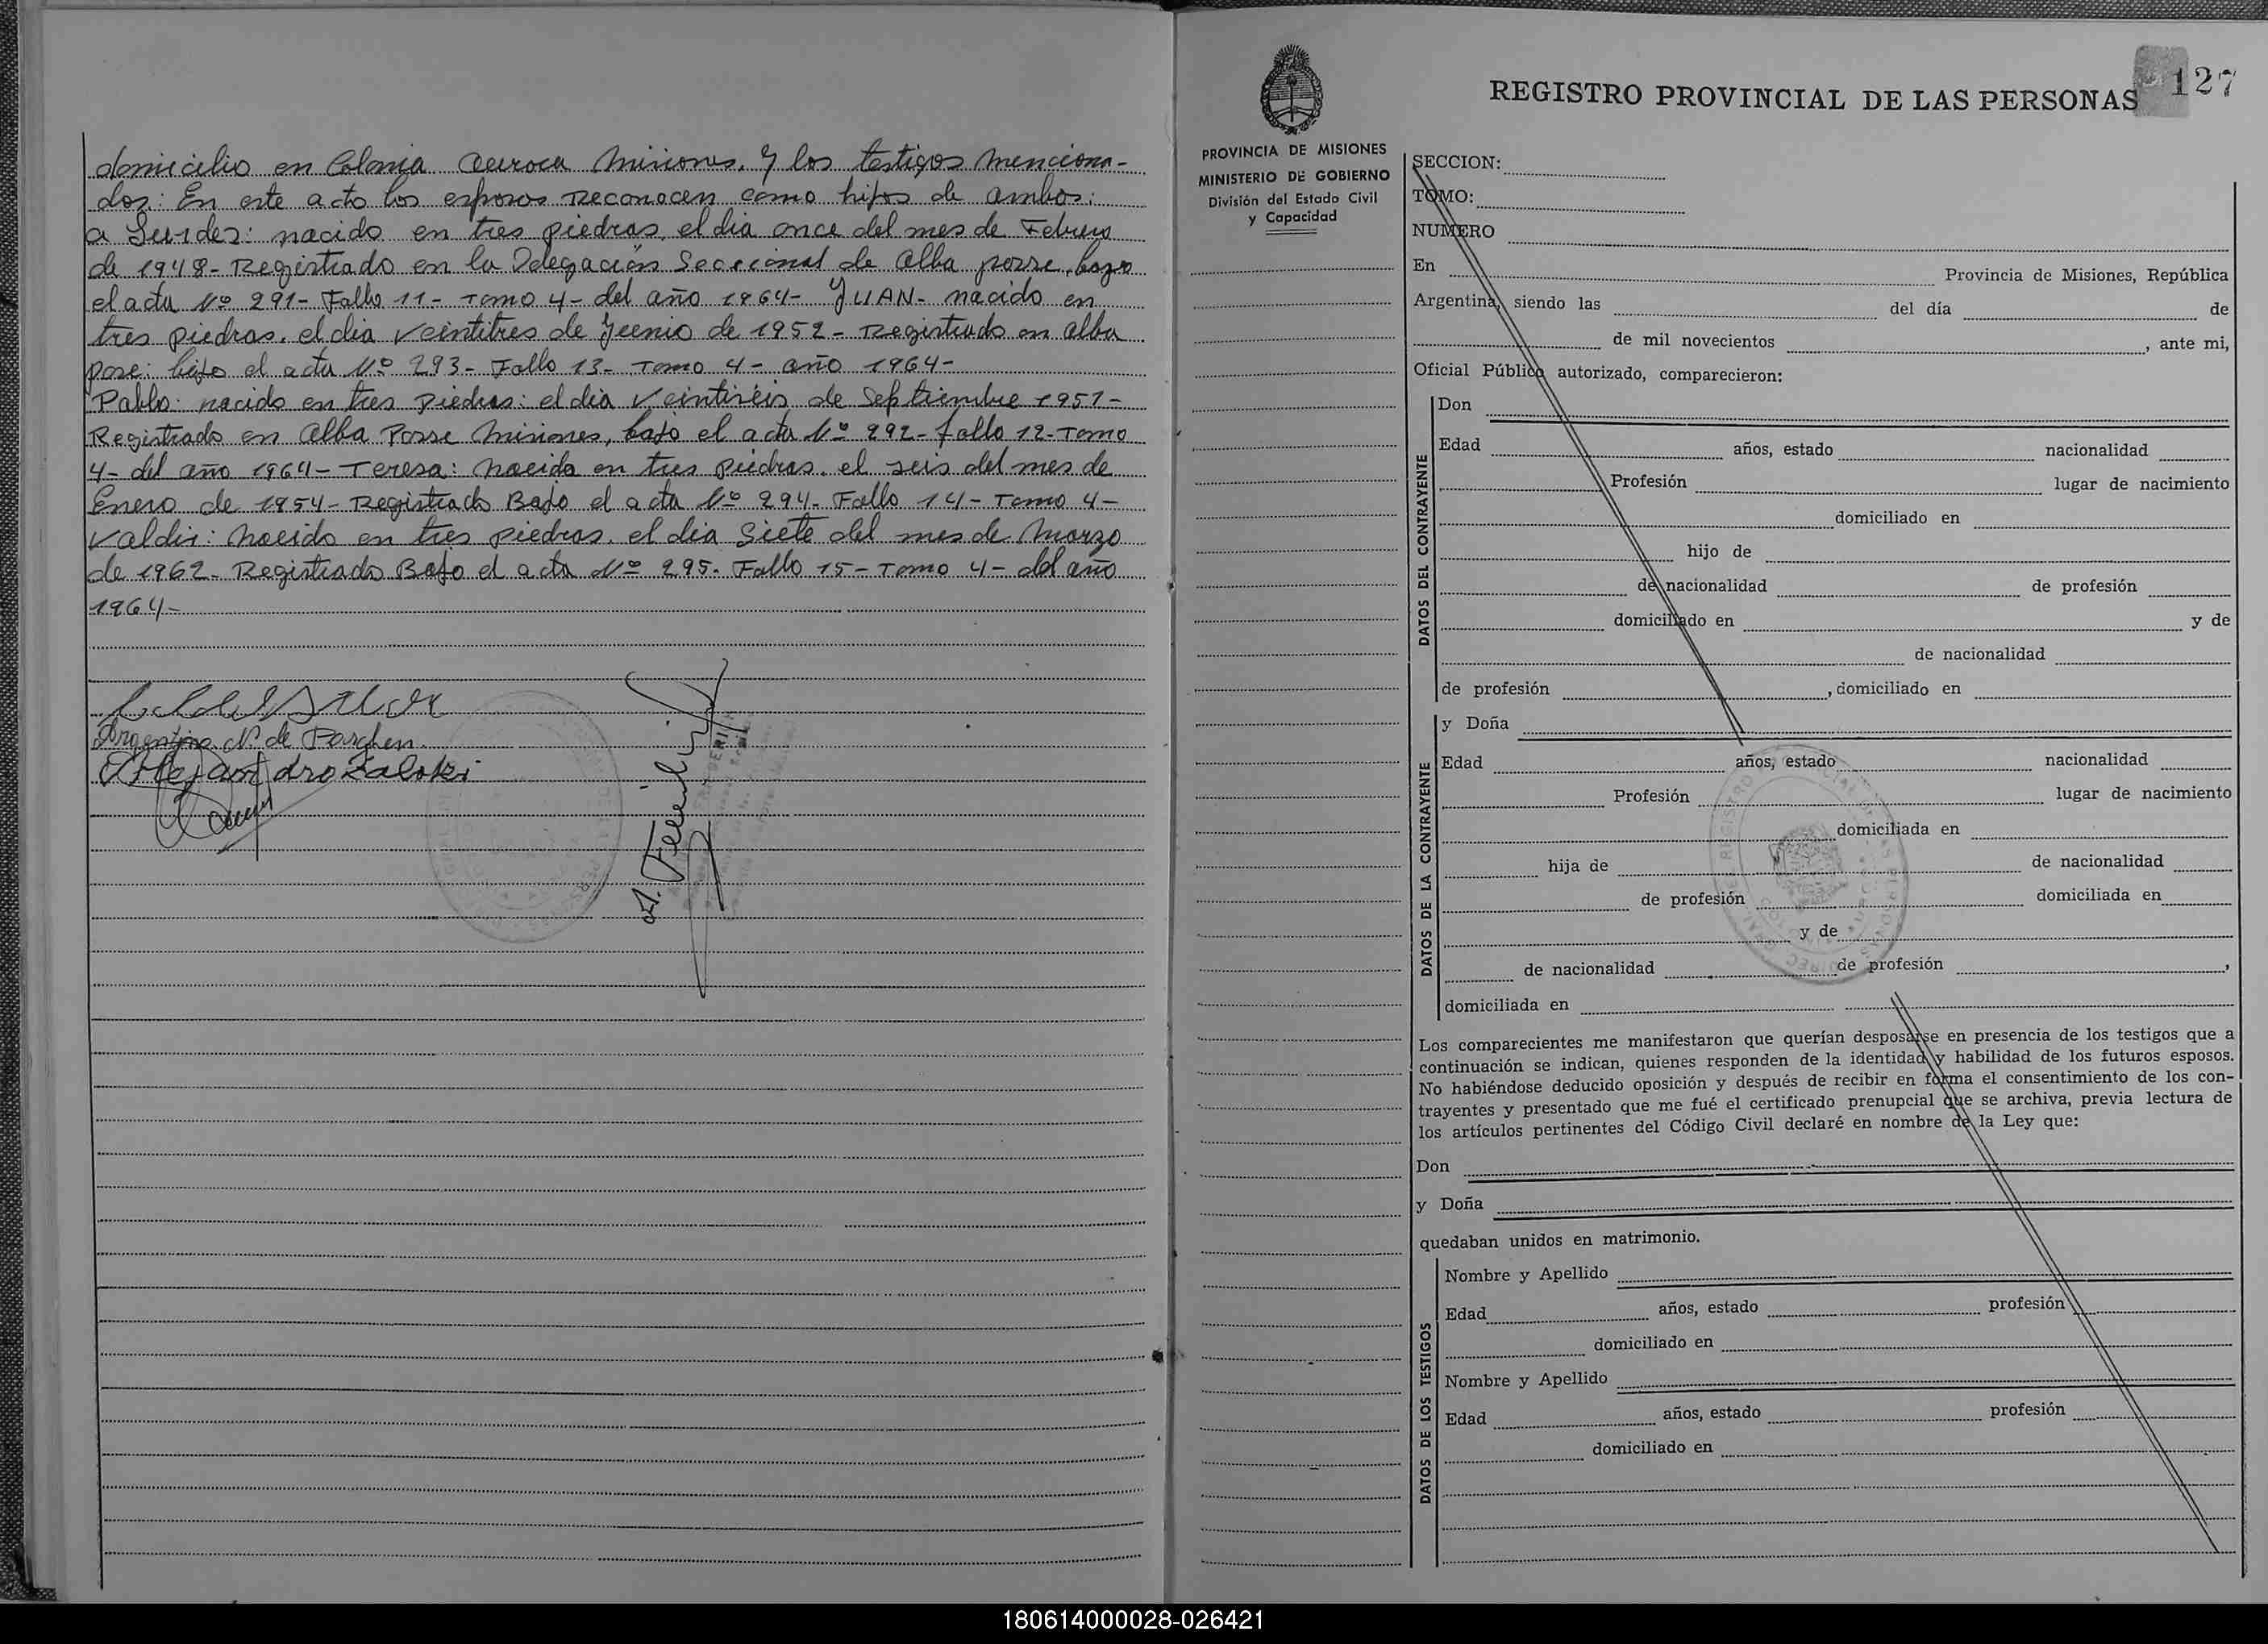 domicilio en Colonia Aurora Misiones. Y los testigos menciona-
dos: En este acto los esposos Reconocen como hijos de ambos:
a Lurdes: nacido en tres piedras, el dia once del mes de Febrero
de 1948- Registrado en la Delegación Seccional de Alba posse, bajo
el acta Nº 291- Follo 11- Tomo 4- del año 1964- JUAN- nacido en
tres piedras. el dia veintitres de Junio de 1952- Registrado en Alba
pose: bajo el acta Nº 293- Follo 13- Tomo 4- año 1964-
Pablo: nacido en tres piedras: el dia veintiséis de Septiembre 1951-
Registrado en Alba Posse Misiones, bajo el acta Nº 292- follo 12- Tomo
4- del año 1964- Teresa: nacida en tres piedras. el seis del mes de
Enero de 1954- Registrado Bajo el acta Nº 294- Follo 14- Tomo 4-
Valdir: nacido en tres piedras. el dia Siete del mes de Marzo
de 1962- Registrado Bajo el acta Nº 295- Follo 15- Tomo 4- del año
1964-
Argentina N. de Parghen
Alejandro Zaloski
127
REGISTRO PROVINCIAL DE LAS PERSONAS
PROVINCIA DE MISIONES
MINISTERIO DE GOBIERNO
División del Estado Civil
y Capacidad
SECCION:
TOMO:
NUMERO
En Provincia de Misiones, República
Argentina, siendo las del día de
de mil novecientos , ante mi,
Oficial Público autorizado, comparecieron:
DATOS DEL CONTRAYENTE
Don
Edad años, estado nacionalidad
Profesión lugar de nacimiento
domiciliado en
hijo de
de nacionalidad de profesión
domiciliado en y de
de nacionalidad
de profesión , domiciliado en
DATOS DE LA CONTRAYENTE
y Doña
Edad años, estado nacionalidad
Profesión lugar de nacimiento
domiciliada en
hija de de nacionalidad
de profesión domiciliada en
y de
de nacionalidad de profesión ,
domiciliada en
Los comparecientes me manifestaron que querían desposarse en presencia de los testigos que a
continuación se indican, quienes responden de la identidad y habilidad de los futuros esposos.
No habiéndose deducido oposición y después de recibir en forma el consentimiento de los con-
trayentes y presentado que me fué el certificado prenupcial que se archiva, previa lectura de
los artículos pertinentes del Código Civil declaré en nombre de la Ley que:
Don
y Doña
quedaban unidos en matrimonio.
DATOS DE LOS TESTIGOS
Nombre y Apellido
Edad años, estado profesión
domiciliado en
Nombre y Apellido
Edad años, estado profesión
domiciliado en
180614000028-026421